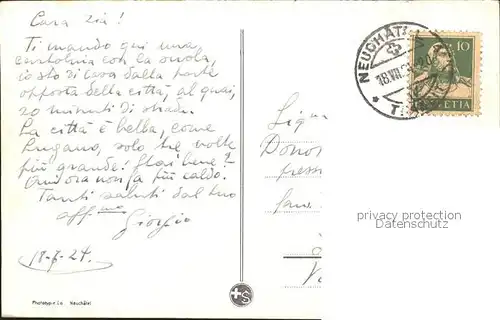 Cara zia!
Ti mando qui una
cartolina con la scuola,
io sto di casa dalla parte
opposta della città, al quai,
20 minuti di strada.
La città è bella, come
Lugano, solo tre volte
più grande! Stai bene?
fa più caldo.
Tanti saluti dal tuo
aff.mo
Giorgio
18-7-24.
Phototypie Co. Neuchâtel
S
NEUCHÂTEL
18.VII.2
10
HELVETIA
Donos
privacy protection
Datenschutz